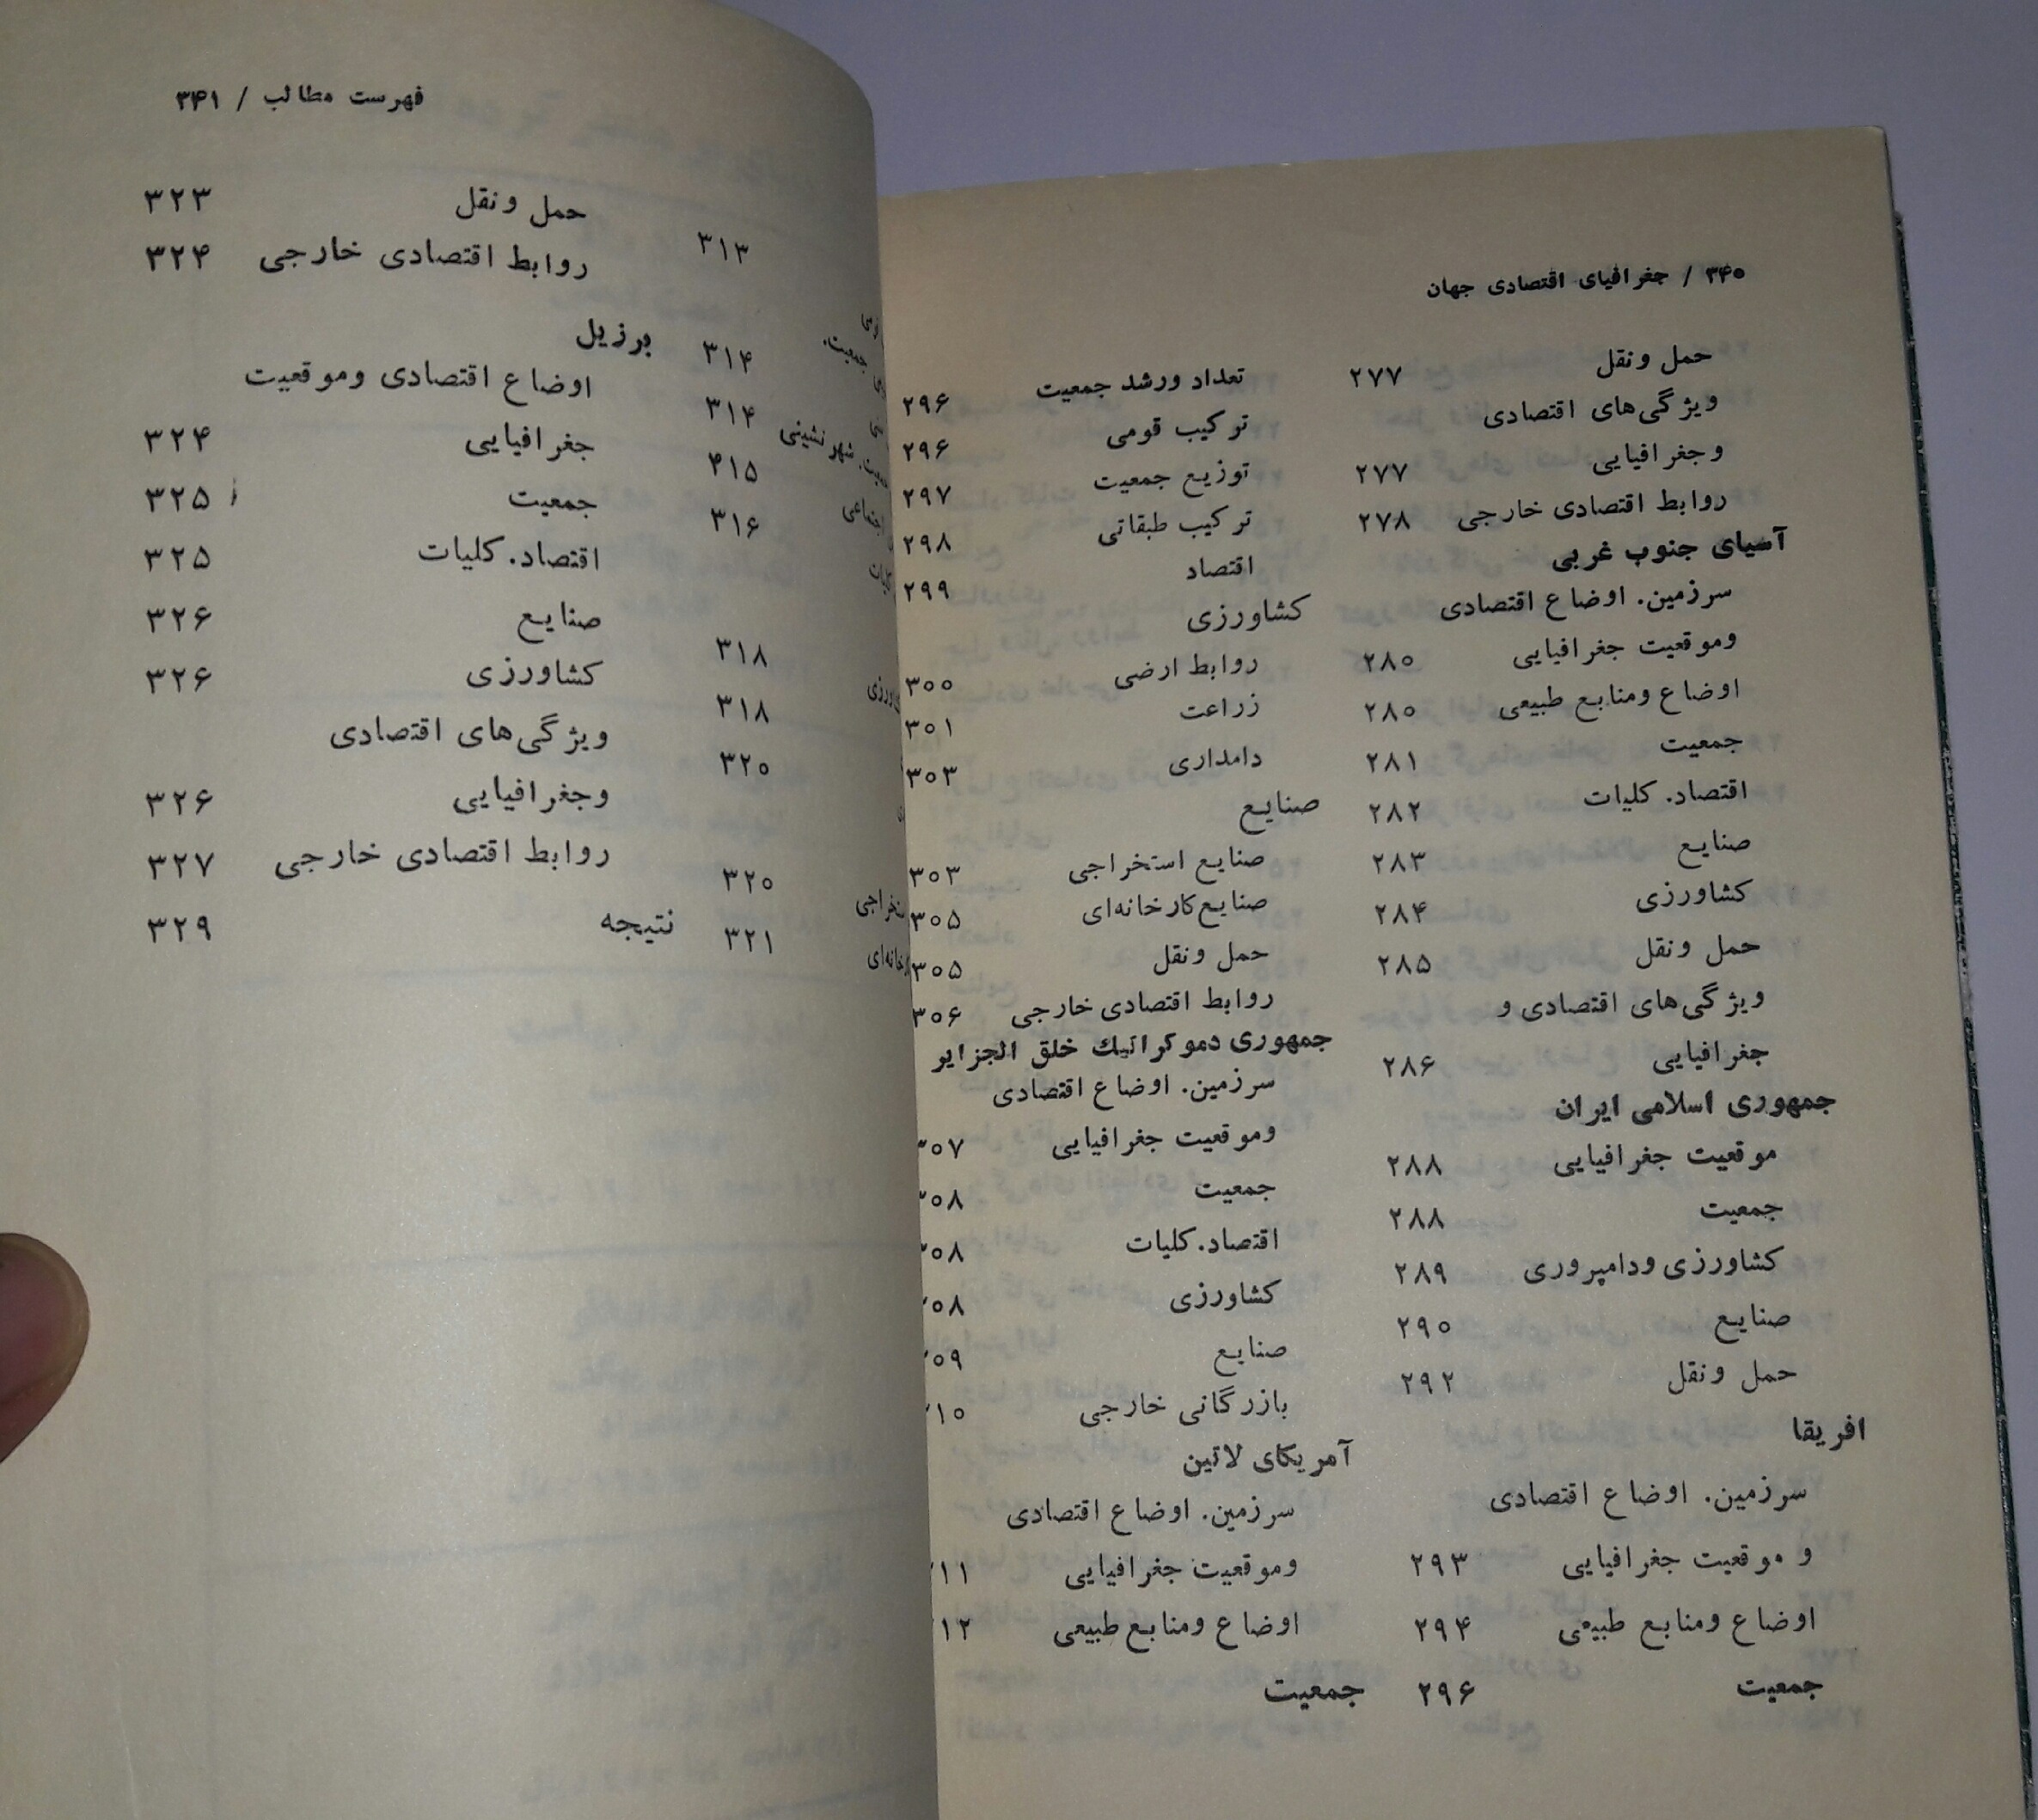 ۳۴۰ / جغرافیای اقتصادی جهان
حمل ونقل ۲۷۷
ویژگی‌های اقتصادی
وجغرافیایی ۲۷۷
روابط اقتصادی خارجی ۲۷۸
آسیای جنوب غربی
سرزمین. اوضاع اقتصادی
وموقعیت جغرافیایی ۲۸۰
اوضاع ومنابع طبیعی ۲۸۰
جمعیت ۲۸۱
اقتصاد. کلیات ۲۸۲
صنایع ۲۸۳
کشاورزی ۲۸۴
حمل ونقل ۲۸۵
ویژگی‌های اقتصادی و
جغرافیایی ۲۸۶
جمهوری اسلامی ایران
موقعیت جغرافیایی ۲۸۸
جمعیت ۲۸۸
کشاورزی ودامپروری ۲۸۹
صنایع ۲۹۰
حمل ونقل ۲۹۲
افریقا
سرزمین. اوضاع اقتصادی
و موقعیت جغرافیایی ۲۹۳
اوضاع ومنابع طبیعی ۲۹۴
جمعیت ۲۹۶
تعداد ورشد جمعیت ۲۹۶
ترکیب قومی ۲۹۶
توزیع جمعیت ۲۹۷
ترکیب طبقاتی ۲۹۸
اقتصاد ۲۹۹
کشاورزی
روابط ارضی ۳۰۰
زراعت ۳۰۱
دامداری ۳۰۳
صنایع
صنایع استخراجی ۳۰۳
صنایع‌کارخانه‌ای ۳۰۵
حمل ونقل ۳۰۵
روابط اقتصادی خارجی ۳۰۶
جمهوری دموکراتیك خلق الجزایر
سرزمین. اوضاع اقتصادی
وموقعیت جغرافیایی ۳۰۷
جمعیت ۳۰۸
اقتصاد.کلیات ۳۰۸
کشاورزی ۳۰۸
صنایع ۳۰۹
بازرگانی خارجی ۳۱۰
آمریکای لاتین
سرزمین. اوضاع اقتصادی
وموقعیت جغرافیایی ۳۱۱
اوضاع ومنابع طبیعی ۳۱۲
جمعیت
فهرست مطالب / ۳۴۱
۳۱۳
جمعیت.
۳۱۴
۳۱۴
شهرنشینی ۴۱۵
اجتماعی ۳۱۶
کلیات
۳۱۸
۳۱۸
۳۲۰
۳۲۰
۳۲۱
حمل ونقل ۳۲۳
روابط اقتصادی خارجی ۳۲۴
برزیل
اوضاع اقتصادی وموقعیت
جغرافیایی ۳۲۴
جمعیت ۳۲۵
اقتصاد.کلیات ۳۲۵
صنایع ۳۲۶
کشاورزی ۳۲۶
ویژگی‌های اقتصادی
وجغرافیایی ۳۲۶
روابط اقتصادی خارجی ۳۲۷
نتیجه ۳۲۹